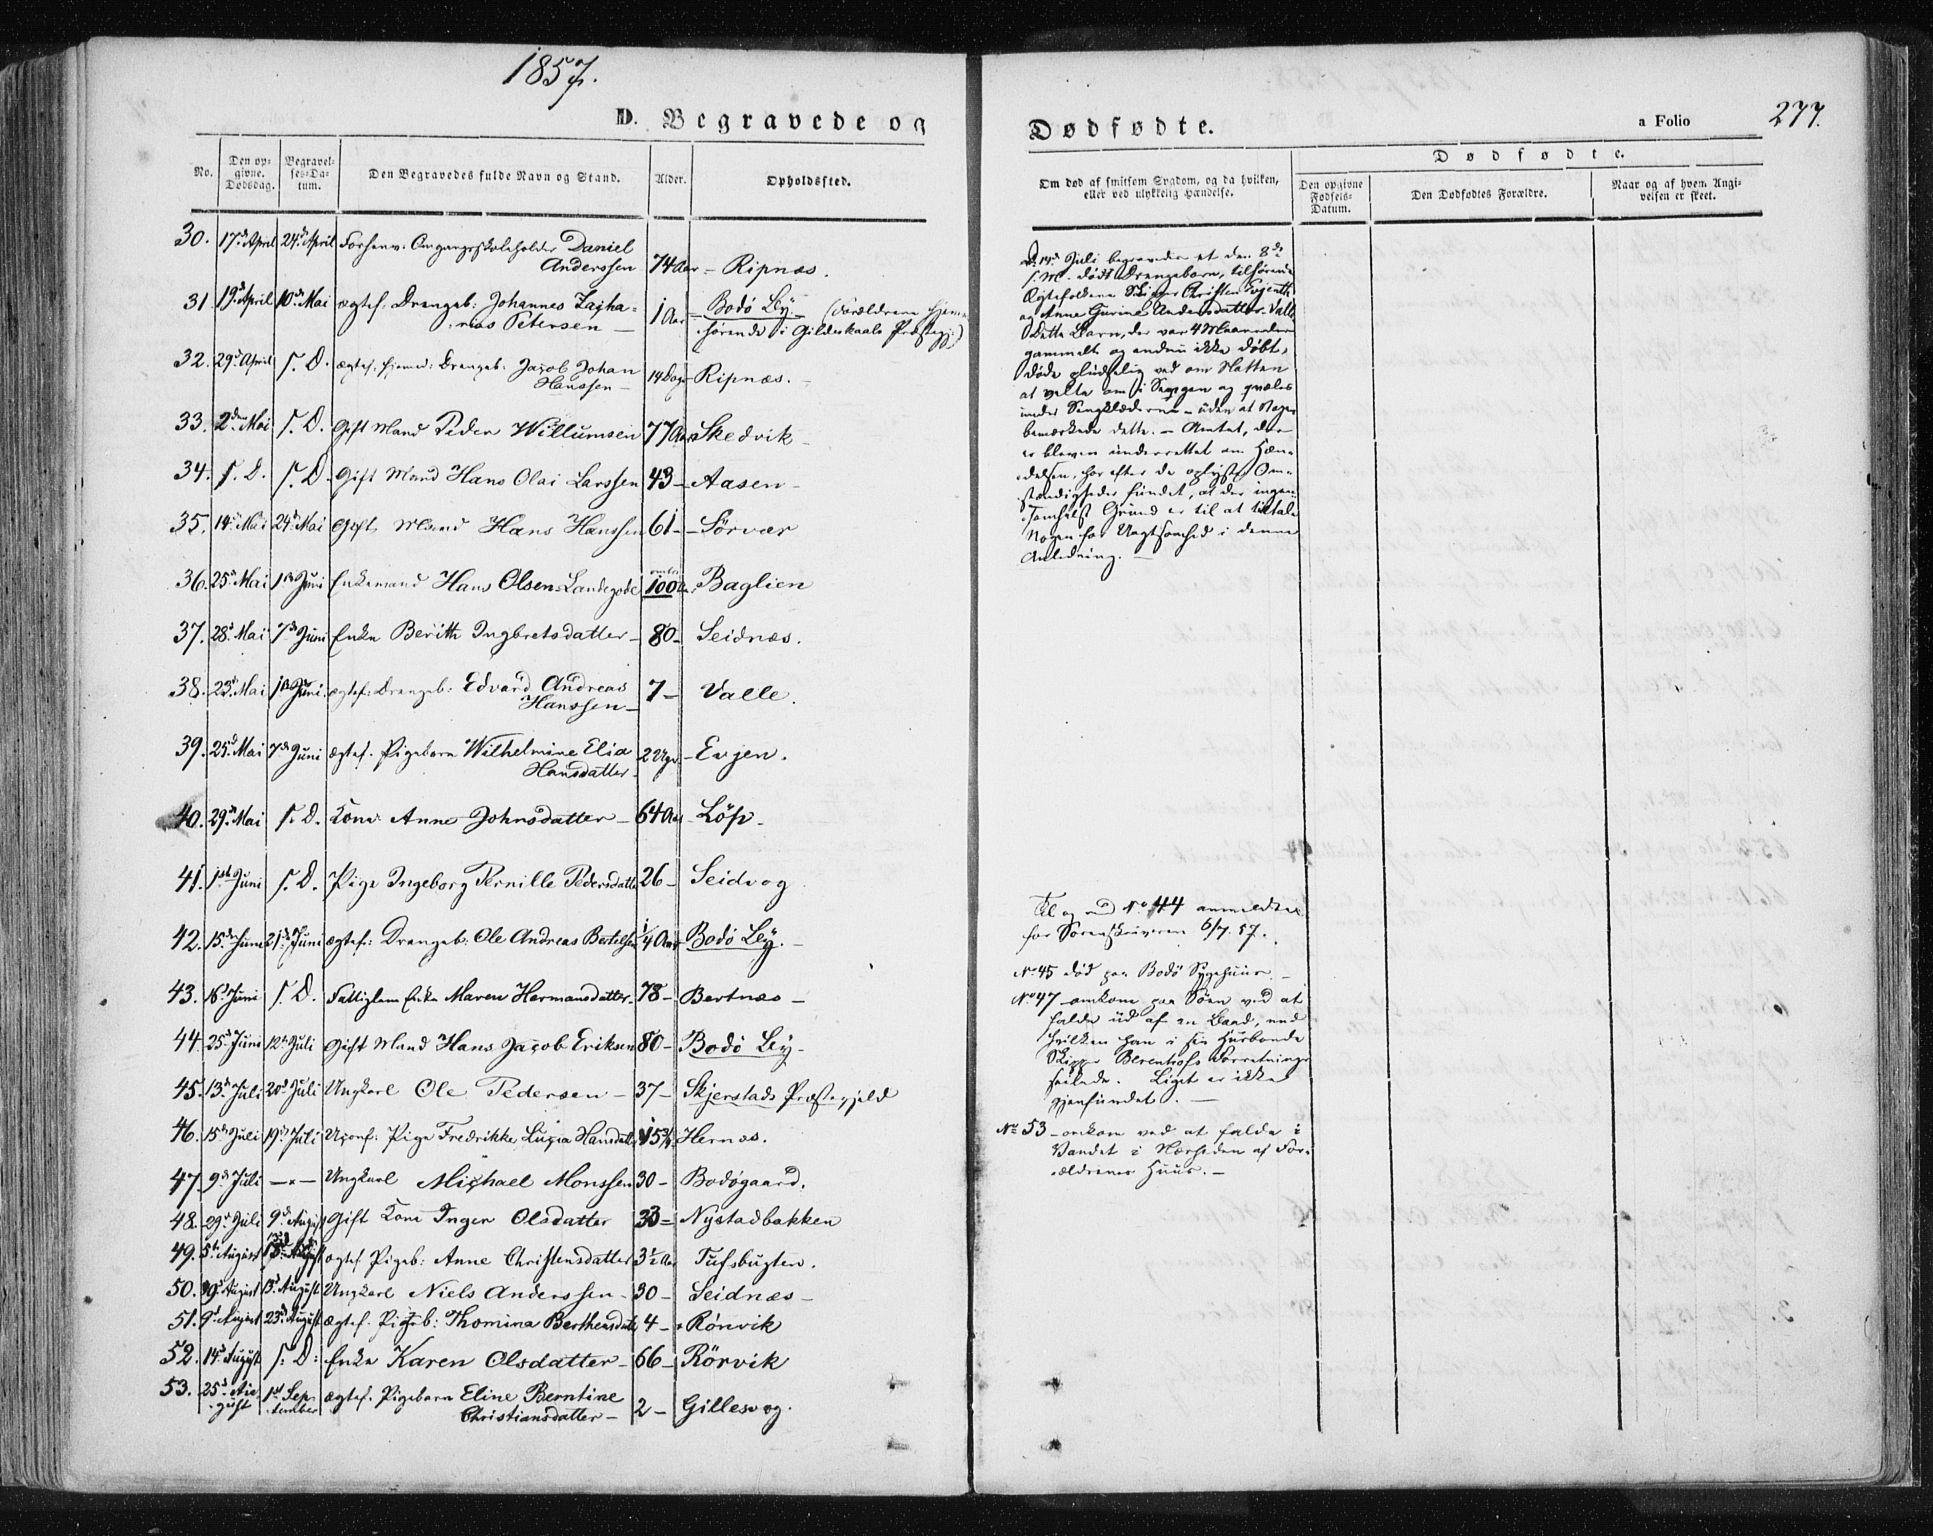 1857.
D. Begravede og
No.
Den op-
givne.
Dødsdag.
Begravel-
ses-Da-
tum.
Den Begravedes fulde Navn og Stand.
Alder.
Opholdssted.
30. 17de April 24de April Forhenv: Omgangsskoleholder Daniel
Anderssen 74 Aar - Ripnæs.
31. 19de April 10de Mai ægtef. Drengeb: Johannes Zacha-
rias Petersen 1 Aar - Bodø By. (Forældrene hjemme-
hørende i Gildeskaals Præstegj:)
32. 29de April s. D. ægtef. hjemmed: Drengeb. Jacob Johan
Hanssen - 14 Dage Ripnæs. -
33. 2den Mai s. D. Gift Mand Peder Willumsen 77 Aar Skedvik -
34. s. D. s. D. Gift Mand Hans Olai Larssen 43 - Aasen -
35. 14de Mai 24de Mai Gift Mand Hans Hanssen 61 - Sörvær
36. 25de Mai 1ste Juni Enkemand Hans Olsen Landegode omtr. 100 Baglien
37. 28de Mai 7de Juni Enke Berith Ingbretsdatter - 80 - Seidnæs.
38. 23de Mai 1ste Juni ægtef: Drengeb: Edvard Andreas
Hanssen - 7 - Valle.
39. 25de Mai 7de Juni ægtef. Pigebarn Wilhelmine Elia
Hansdatter - 2 Uger - Evjen.
40. 29de Mai s. D. Kone Anne Johnsdatter - 64 Aar - Löp -
41. 1ste Juni s. D. Pige Ingeborg Pernille Pedersdatter 26 - Seidvog
42. 15de Juni 21de Juni ægtef: Drengeb: Ole Andreas Bertelsen 1/4 Aar Bodø By. -
43. 16de Juni s. D. Fattiglem Enke Maren Hermansdatter - 78 - Bertnæs -
44. 25de Juni 12te Juli Gift Mand Hans Jacob Eriksen 80 - Bodö By -
45. 13de Juli 20de Juli Ungkarl Ole Pedersen - 37 - Skjerstads Præstegjeld
46. 15de Juli 19de Juli Uconf: Pige Fredrikke Lucia Hansdatter 15 3/4 Hernæs.
47. 9de Juli - " - Ungkarl Michael Monssen 30 - Bodøgaard.
48. 29de Juli 9de August Gift Kone Inger Olsdatter 33 - Nystadbakken
49. 5te August August ægtef. Pigeb: Anne Christensdatter 3 1/2 Aar Tufsbugten.
50. August 13de August Ungkarl Niels Anderssen - 30 - Seidnæs -
51. 9de August 23de August ægtef. Pigeb: Thomina Berthensdatter 4 - Rönvik
52. 14de August s. D: Enke Karen Olsdatter - 66 - Rörvik
53. 25de Au-
gust 1ste Sep-
tember ægtef. Pigebarn Eline Berntine
Christiansdatter - 2 - Gillesvog.
Dødfødte.
a Folio 277.
Om død af smitsom Sygdom, og da hvilken,
eller ved ulykkelig Hændelse.
Dødfødte.
Den opgivne
Fødsels-
Datum.
Den Dødfødtes Forældre.
Naar og af hvem Angi-
velsen er skeet.
D. Juli begravedes et den 8de
s. M. dødt Drengebarn, tilhørende
Ægtefolkene Skipper Christen Evjenth
og Anne Gurine Andersdatter Valle
Dette Barn, der var 4 Maaneder
gammelt og endnu ikke döbt,
döde pludselig ved om Natten
at velte om i Sengen og qvæles
under Sengklæderne - uden at Nogen
bemærkede dette. - Amtet, der
er bleven underrettet om Hæn-
delsen, har efter de oplyste Om-
stændigheder fundet, at der ingen-
somhelst Grund er til at tiltale
Nogen for Uagtsomhed i denne
Anledning. -
Til og med No 44 anmeldte
for Sorenskriveren 6/7. 57.
No 45 död paa Bodö Sygehuus. -
No 47 - omkom paa Söen ved at
falde ud af en Baad, med
hvilken han i sin Husbonde
Skipper Berentsofs Forretninger
seilede. Liget er ikke
gjenfundet. -
No 53 - omkom ved at falde i
Vandet i Nærheden af For-
ældrenes Huus. -